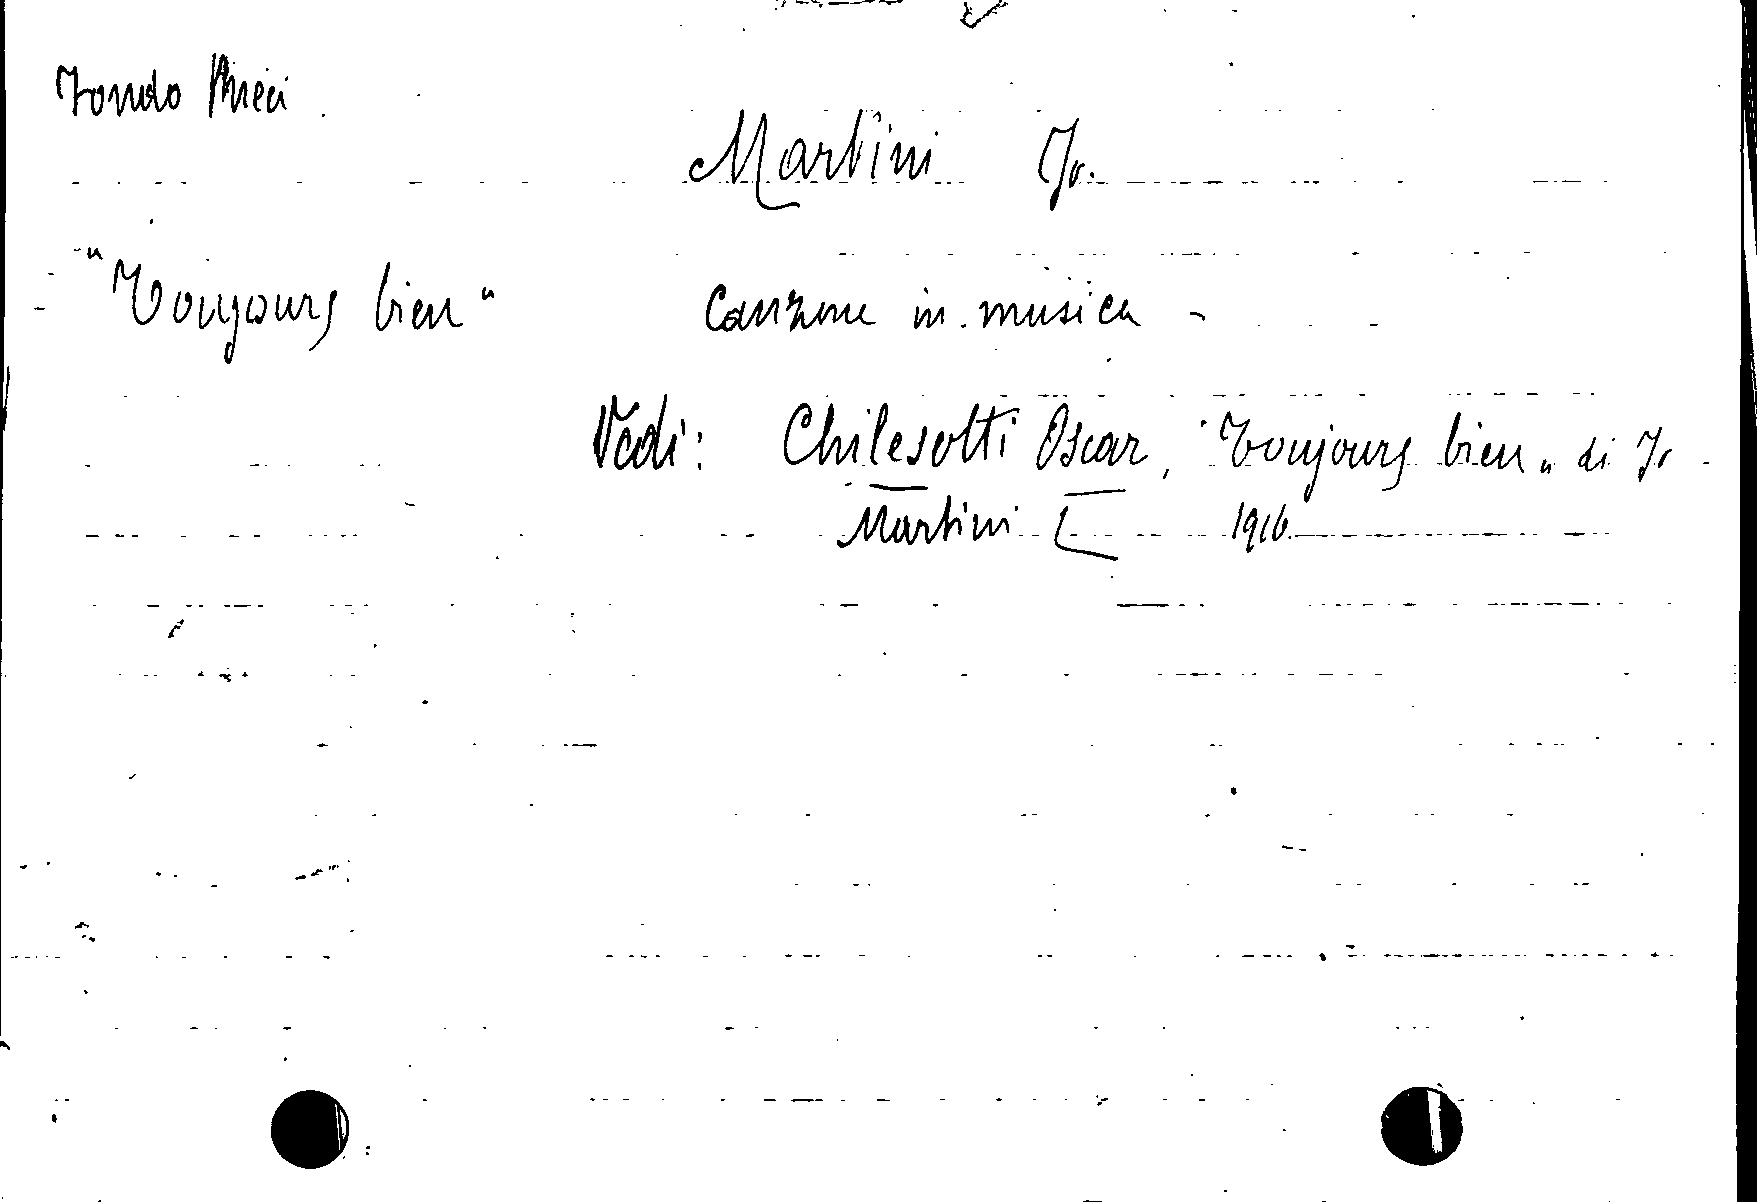 Fondo
Martini Jo.
"Toujours bien" Canzone in musica -
Vedi: Chilesotti Oscar, "Toujours bien" di Jo
Martini 1916.